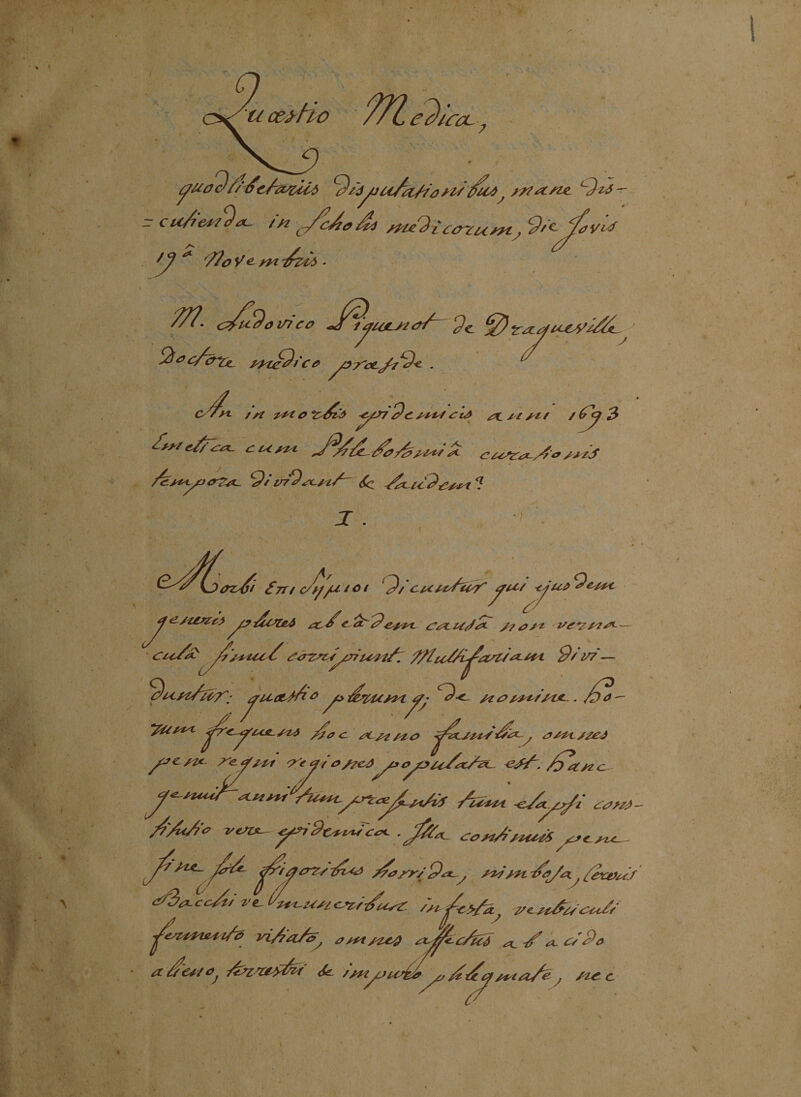 1
Quæstio Medica,
quodlibetariis Disputationibus, mane Dis-
= cutienda in Scholis medicorum, Die Jovis
19ª Novembris.
M. Ludovico De
Doctore medico præside.
An in morbis epidemicis anni 1693
Emetica cum Phlebotomiâ curationis
tempora Dividant & laudem?
I.
Morbi Επιδήμιοι Dicuntur qui ejusdem
generis plures ab eâdem causâ non verna-
culâ simul corripiunt. Multifariam Divi-
Duntur: quæstio plerumq; De nomine. Ho-
rum frequens hoc anno familia, omnes
pene regni regiones populata est. Hanc
genuit anni tum præsentis tum elapsi cons-
titutio vere epidemica. Illa continuis pene
sine sole frigoribus horrida, nimbosa,
ve in festa, ventriculi
fermento vitiato, omnes affectus ab acido
alieno, terrestri & impuro phlegmate, nec